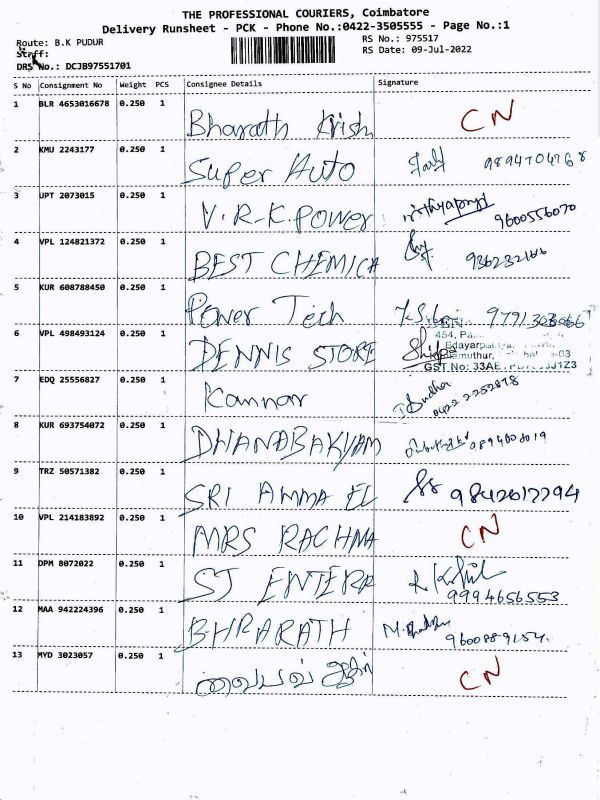 THE PROFESSIONAL COURIERS, Coimbatore
Delivery Runsheet - PCK - Phone No.:0422-3505555 - Page No.:1
Route: B.K PUDUR
RS No.: 975517
Staff:
RS Date: 09-Jul-2022
DRS No.: DCJB97551701
S No Consignment No Weight PCS Consignee Details Signature
1 BLR 4653016678 0.250 1 Bharath Krish CN
2 KMU 2243177 0.250 1 Super Auto 9894704768
3 UPT 2073015 0.250 1 V.R.K.Power 9600556070
4 VPL 124821372 0.250 1 BEST CHEMICA
5 KUR 608788450 0.250 1 Power Tech
6 VPL 498493124 0.250 1 DENNIS STORE
454,
GST No: 33AE
7 EDQ 25556827 0.250 1 Kannan 0422 2252878
8 KUR 693754072 0.250 1 DHANABAKYAM
9 TRZ 50571382 0.250 1 SRI AMMA EL
10 VPL 214183892 0.250 1 MRS RACHMA CN
11 DPM 8072022 0.250 1 ST ENTERP 9994656553
12 MAA 942224396 0.250 1 BHRARATH
13 MYD 3023057 0.250 1 CN